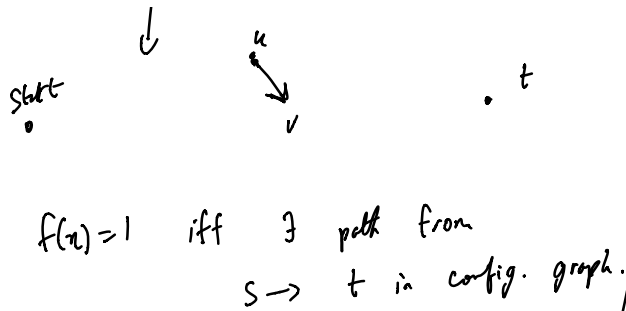 u
start
t
v
f(x)=1 iff ∃ path from
s → t in config. graph.